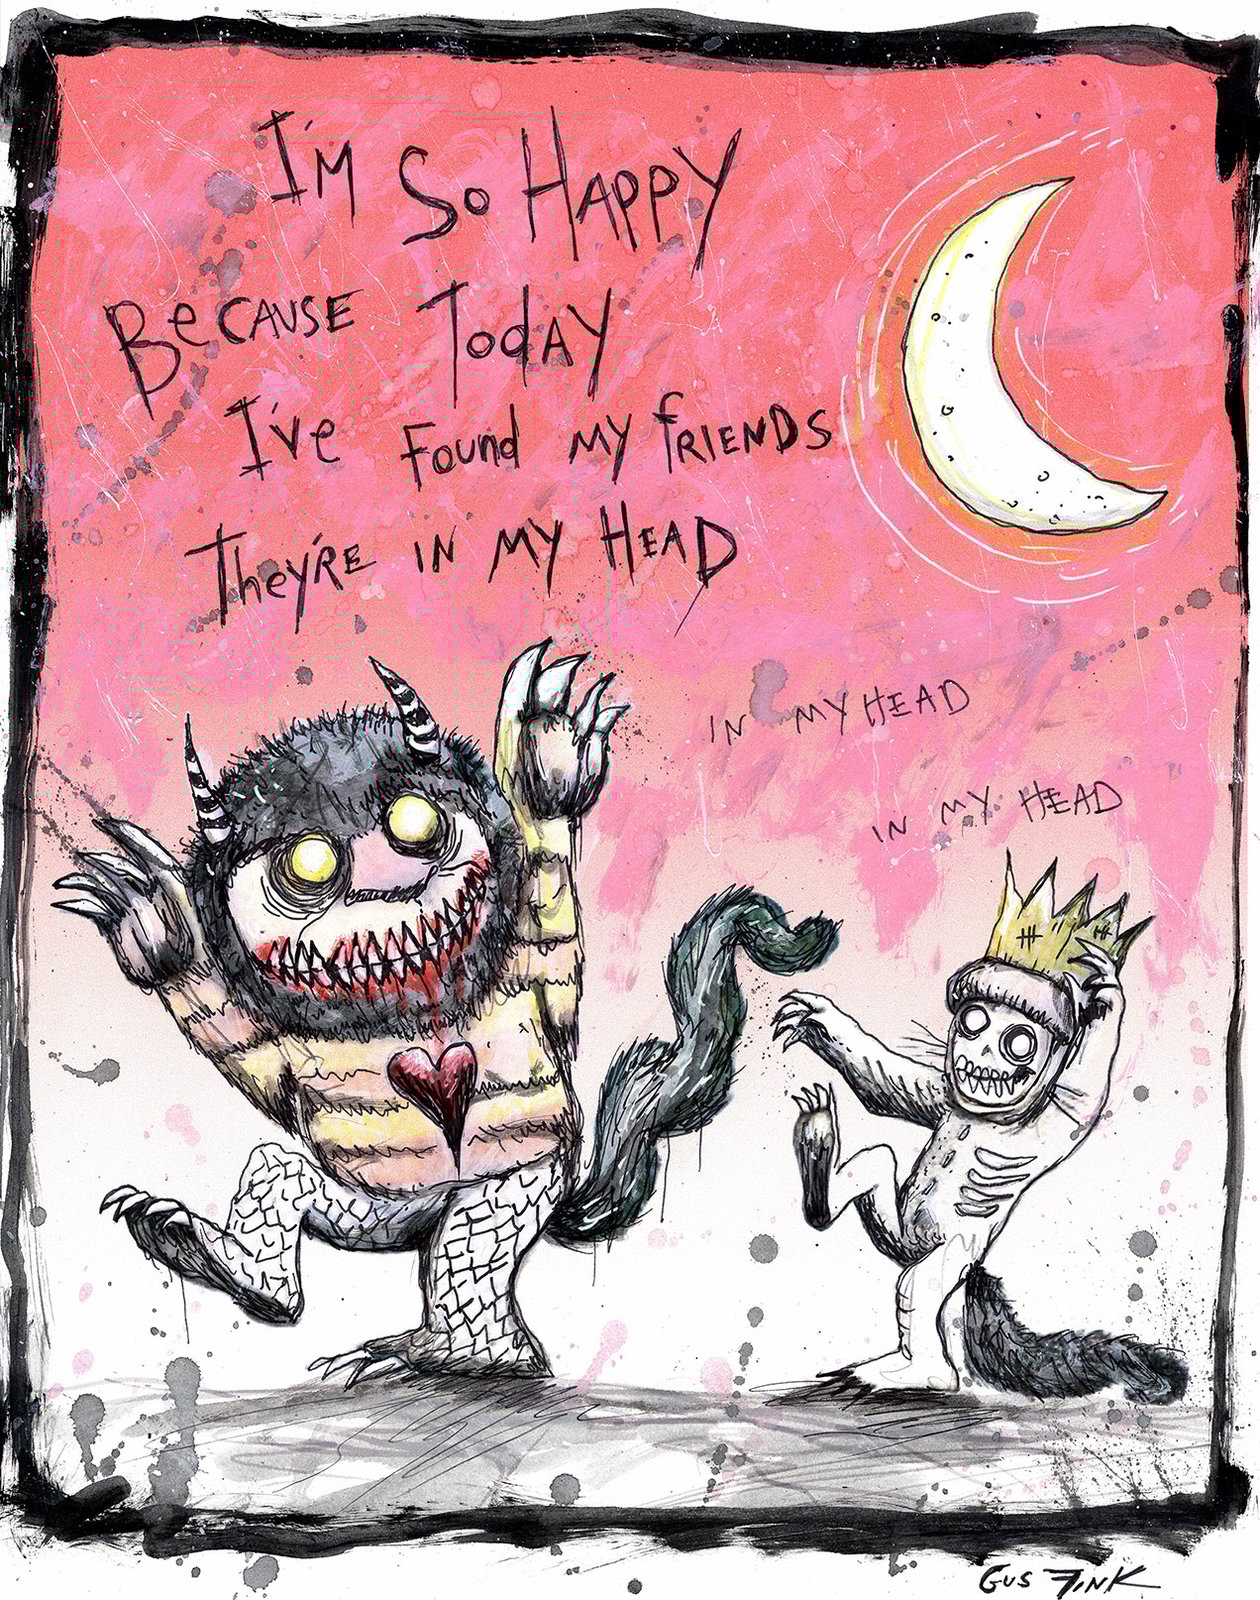 I'M SO HAPPY
BeCAUSE TodAY
I'VE Found MY fRIENDS
They'RE IN MY HEAD
IN MY HEAD
IN MY HEAD
GUS FINK